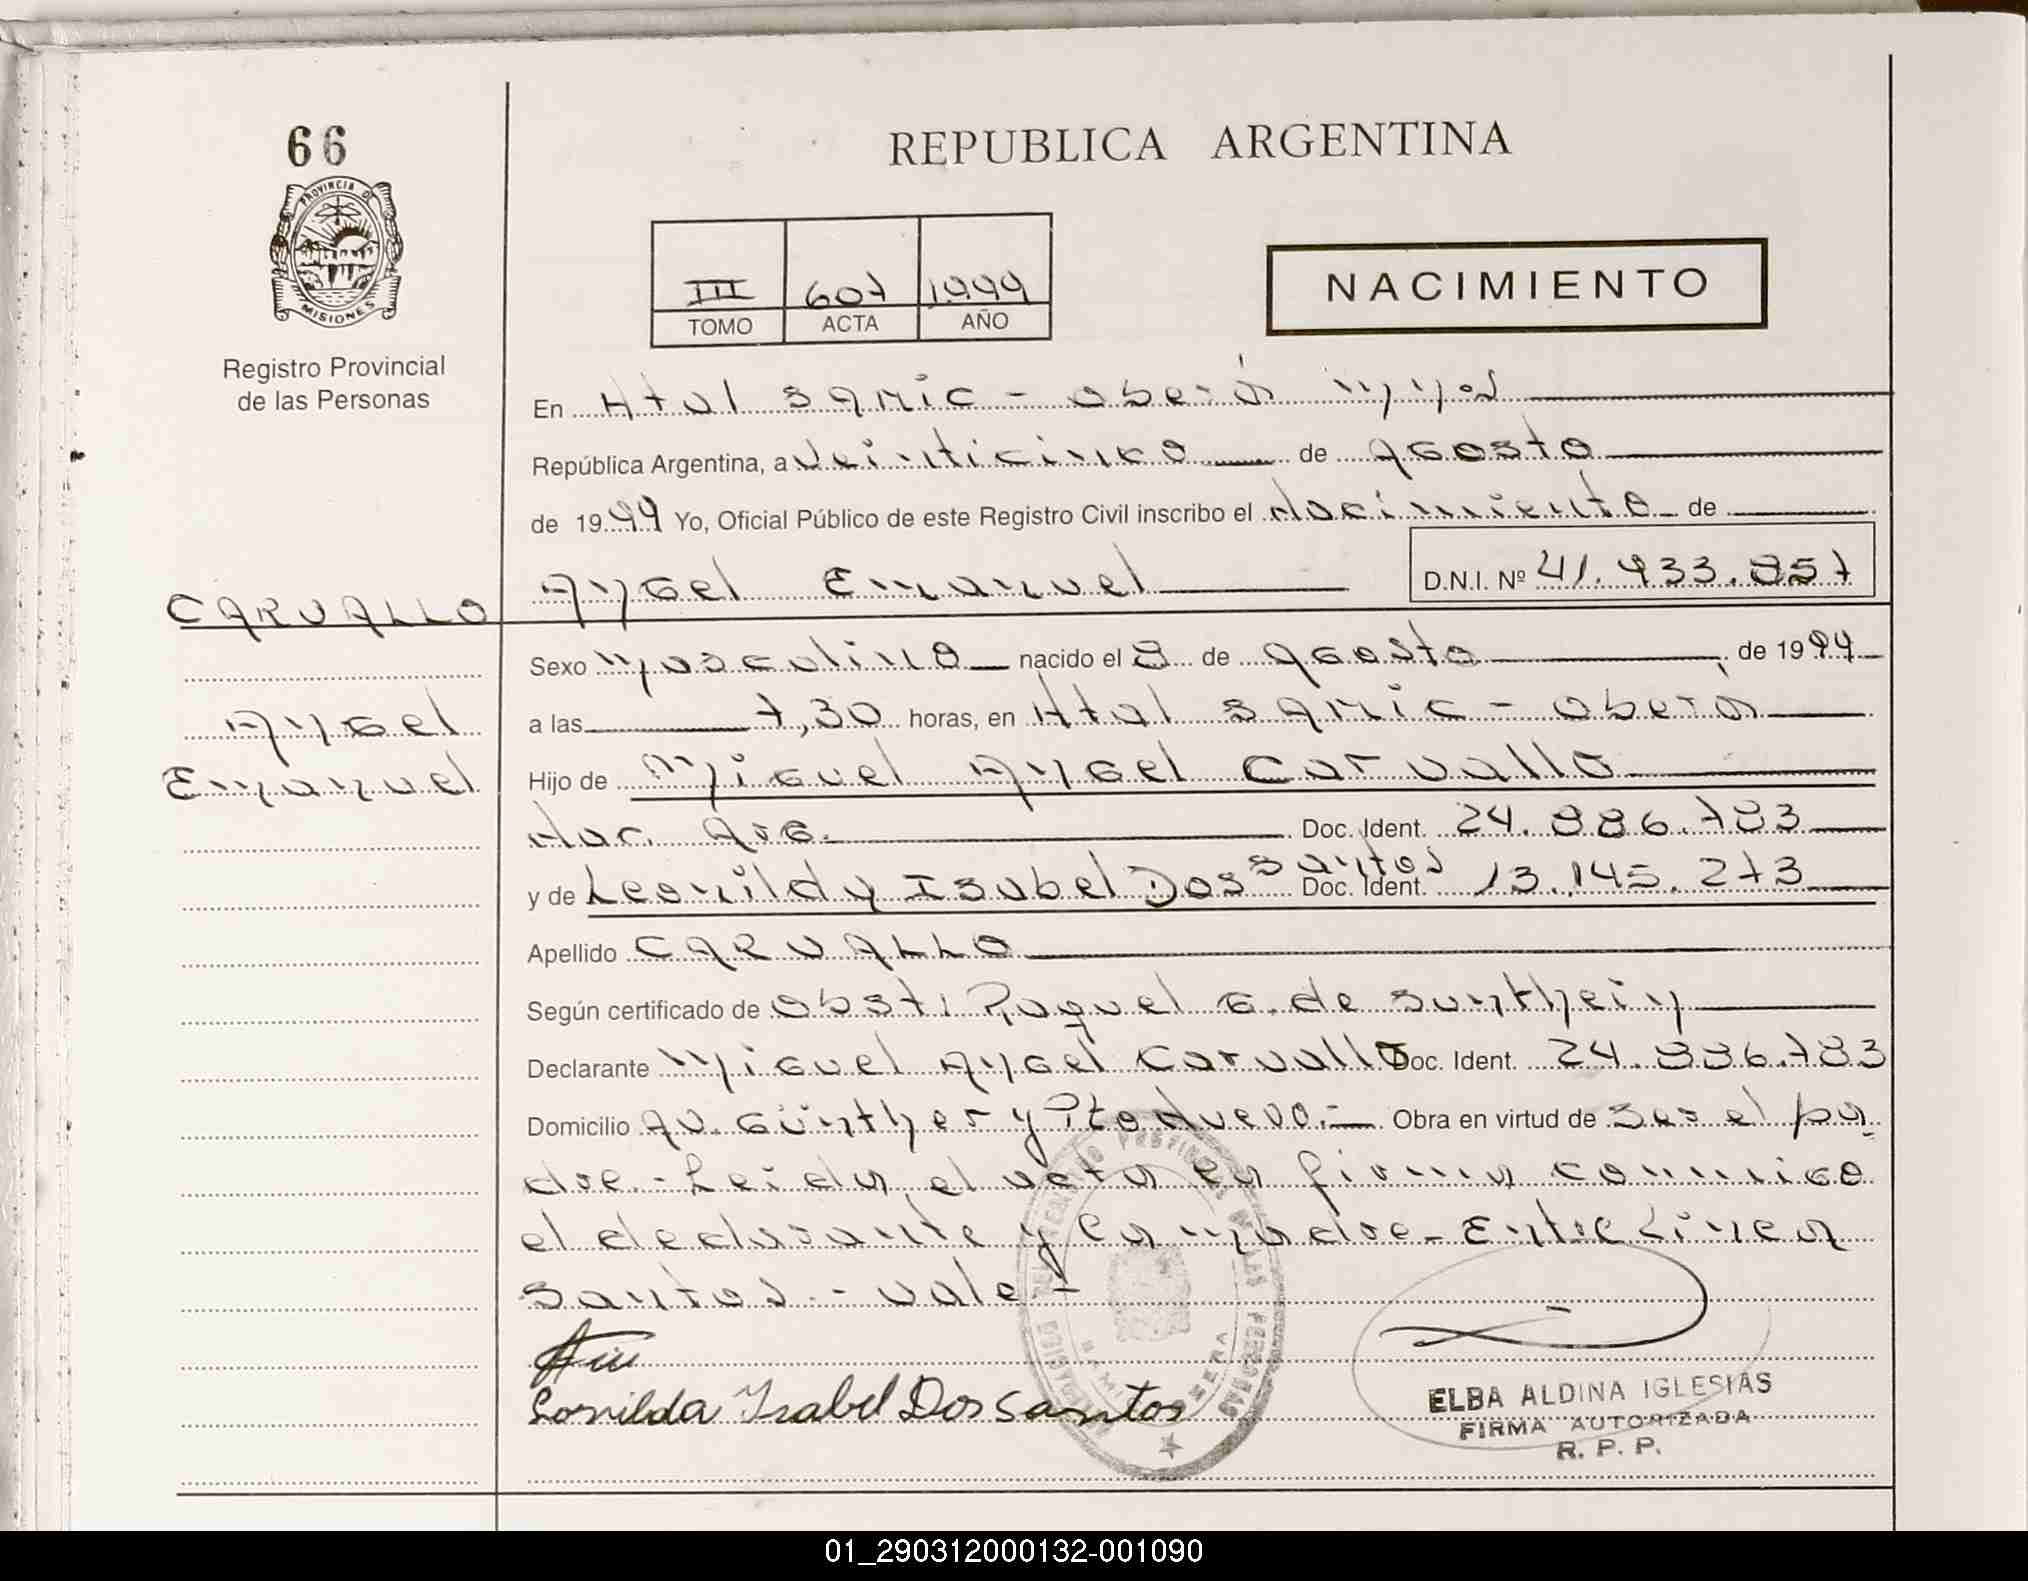 66
PROVINCIA DE
MISIONES
Registro Provincial
de las Personas
REPUBLICA ARGENTINA
III 607 1999
TOMO ACTA AÑO
NACIMIENTO
En Htal Samic - Oberá Mnes
República Argentina, a Veinticinco de Agosto
de 1999 Yo, Oficial Público de este Registro Civil inscribo el Nacimiento de
Angel Emanuel D.N.I. Nº 41.933.857
CARVALLO
Angel
Emanuel
Sexo Masculino nacido el 8 de Agosto de 1999
a las 7,30 horas, en Htal Samic - Oberá
Hijo de Miguel Angel Carvallo
Nac. Arg. Doc. Ident. 24.886.783
y de Leonilda Isabel Dos Santos Doc. Ident. 13.145.273
Apellido CARVALLO
Según certificado de Obst. Raquel G. de Sunthein
Declarante Miguel Angel Carvallo Doc. Ident. 24.886.783
Domicilio Av. Günther y Pto Nuevo.- Obra en virtud de Ser el pa
dre.- Leida el acta la firma conmigo
el declarante y la madre - Entre Linea
Santos - vale -
Leonilda Isabel Dos Santos
ELBA ALDINA IGLESIAS
FIRMA AUTORIZADA
R. P. P.
01_290312000132-001090